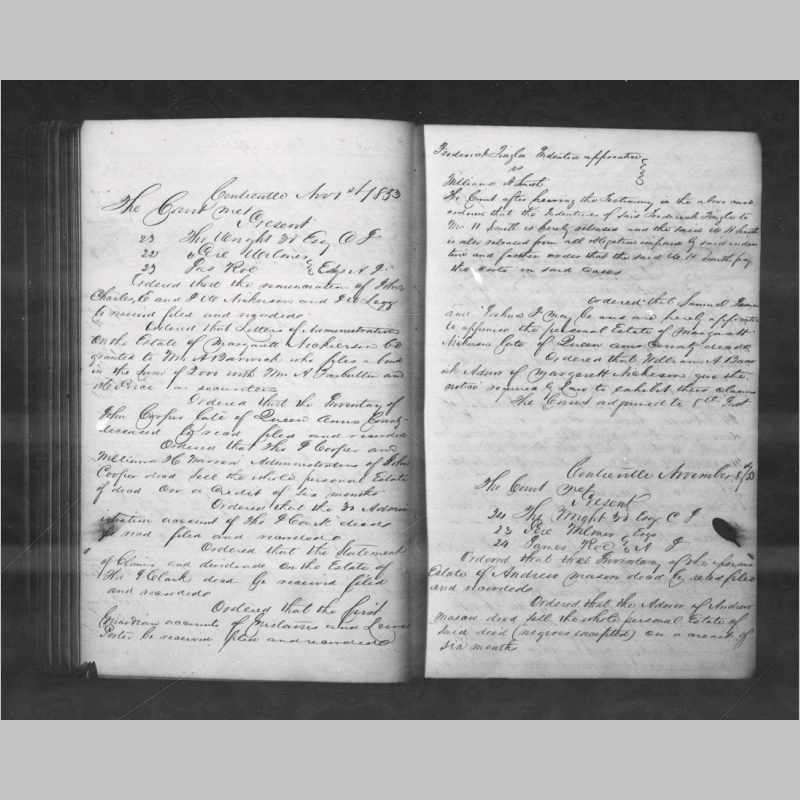 Centreville Nov 1st 1853
The Court met
Present
23 Tho Wright 3d Esq C J
22 Pere Wilmer
23 Jas Roe Esqs A J
Ordered that the renunciation of John
Charles, C and J W Nickerson and J W Legg
be received filed and recorded
Ordered that Letters of Administration
on the Estate of Margarett Nickerson be
granted to Wm A Barwick who files a bond
in the sum of 2000 with Wm A and
Price as securities
Ordered that the Inventory of
John Cooper late of Queen Anns County
deceased be read filed and recorded
Ordered that Tho J Cooper and
William H Administrators of John
Cooper decd sell the whole personal Estate
of decd on a Credit of six months
Ordered that the 3d Admin
istration account of Tho J Clark deceasd
be read filed and recorded
Ordered that the Statement
of Claims and dividends on the Estate of
Tho J Clark decd be received filed
and recorded
Ordered that the first
Guardian accounts of and
Porter be received filed and recorded
Frederick Indented apprentice
vs
William H Smith
The Court after hearing the Testimony in the above case
orders that the Indenture of said Frederick be
Wm H Smith is hereby released and the said W H Smith
is also released from all obligation imposed by said inden
ture and further orders that the said W H Smith pay
the costs in said cases
Ordered that Samuel
and Joshua J May be and are hereby appointed
to appraise the personal Estate of Margarett
Nickerson late of Queen Anns County deceasd
Ordered that William A Barw
ick Admr of Margarett Nickerson give the
notice required by Law to exhibit their claims
The Court adjourned to 8th Inst
Centreville November 8th/53
The Court met
Present
24 Tho Wright 3d Esq C J
23 Pere Wilmer Esqs
24 James Roe A J
Ordered that that Inventory of the personal
Estate of Andrew Mason decd be read filed
and recorded
Ordered that the Admr of Andrew
Mason decd sell the whole personal Estate of
said decd (negroes excepted) on a credit of
six months